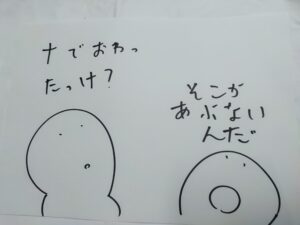 ナでおわっ
たっけ?
そこが
あぶない
んだ